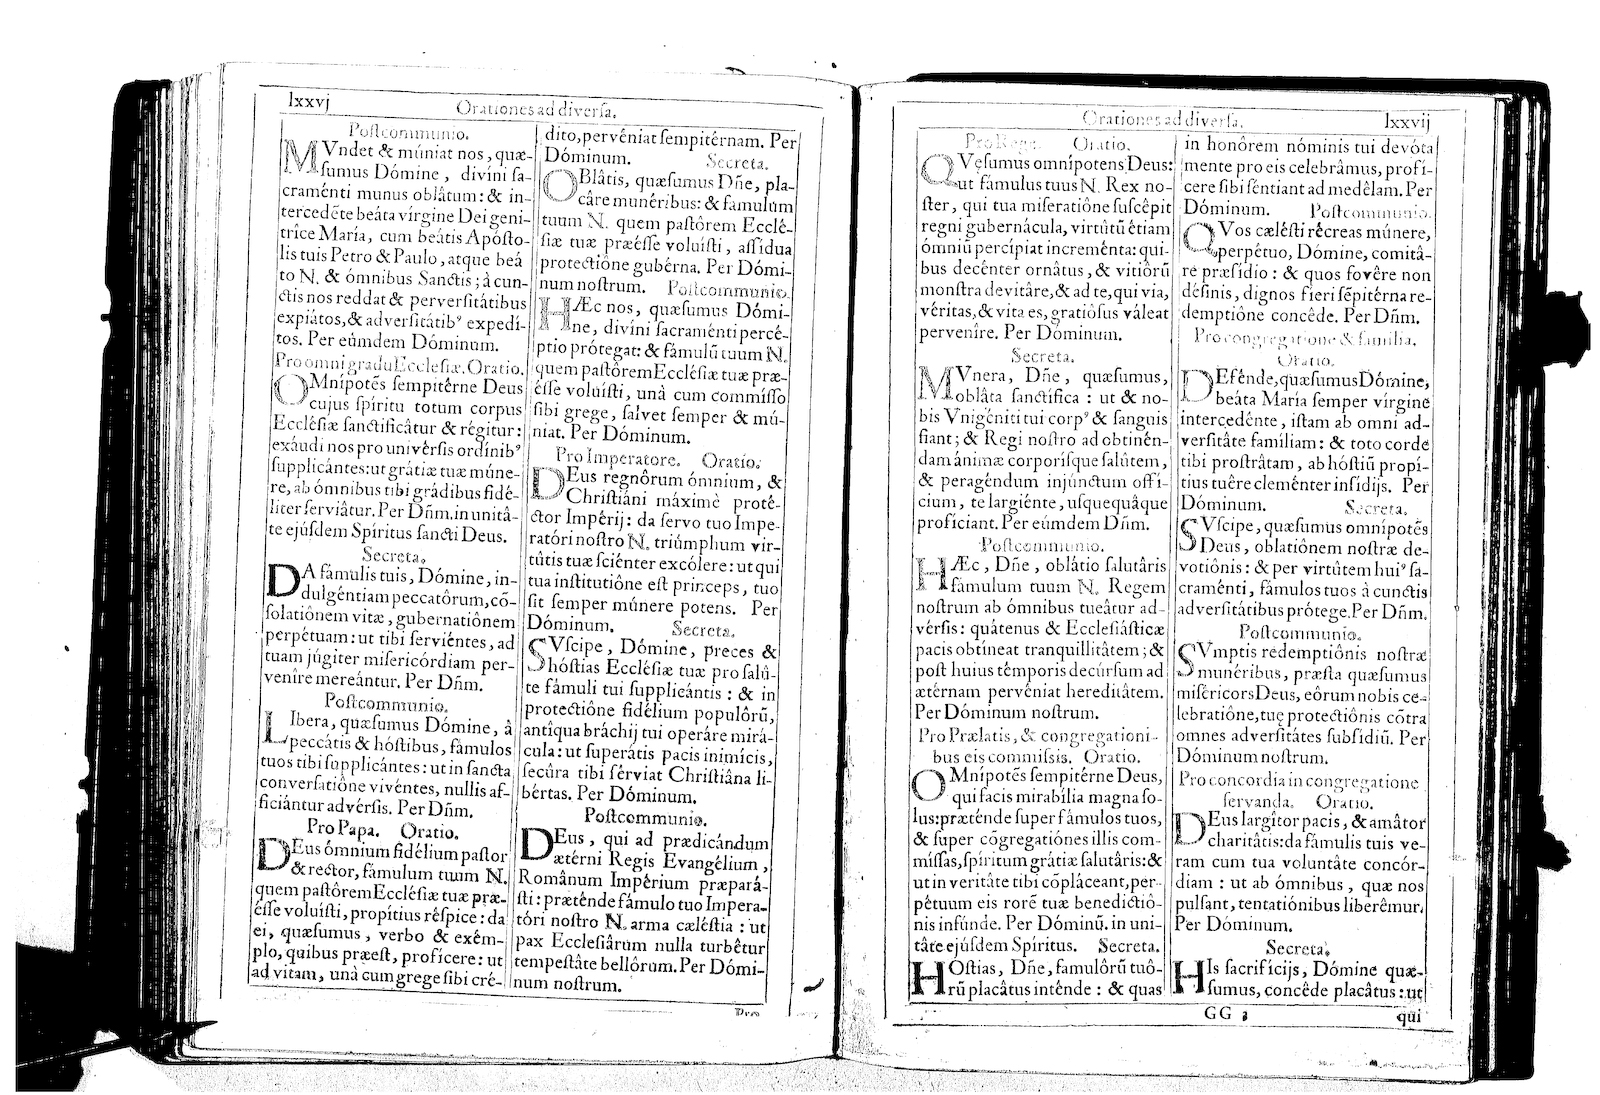 lxxvj
Orationes ad diverſa.
Poſtcommunio.
MVndet & múniat nos, quæ-
ſumus Dómine, divíni ſa-
craménti munus oblâtum: & in-
tercedẽte beáta vírgine Dei geni-
trîce María, cum beátis Apóſto-
lis tuis Petro & Paulo, atque beá
to N. & ómnibus Sanctis; à cun-
ctis nos reddat & perverſitátibus
expiátos, & adverſitátibꝰ expedí-
tos. Per eúmdem Dóminum.
Pro omni gradu Eccleſiæ. Oratio.
OMnípotẽs ſempitérne Deus
cujus ſpíritu totum corpus
Eccléſiæ ſanctificâtur & régitur:
exáudi nos pro univérſis ordínibꝰ
ſupplicántes: ut grátiæ tuæ múne-
re, ab ómnibus tibi grádibus fidé-
liter ſerviâtur. Per Dñm. in unitâ-
te ejúſdem Spíritus ſancti Deus.
Secreta.
DA fámulis tuis, Dómine, in-
dulgéntiam peccatôrum, cõ-
ſolatiônem vitæ, gubernatiônem
perpétuam: ut tibi ſerviéntes, ad
tuam júgiter miſericórdiam per-
venîre mereántur. Per Dñm.
Poſtcommunio.
LIbera, quæſumus Dómine, à
peccátis & hóſtibus, fámulos
tuos tibi ſupplicántes: ut in ſancta
converſatiône vivéntes, nullis af-
ficiántur advérſis. Per Dñm.
Pro Papa. Oratio.
DEus ómnium fidélium paſtor
& rector, fámulum tuum N.
quem paſtôrem Eccléſiæ tuæ præ-
éſſe voluíſti, propítius réſpice: da
ei, quæſumus, verbo & exém-
plo, quibus præeſt, profícere: ut
ad vitam, unà cum grege ſibi cré-
dito, pervéniat ſempitérnam. Per
Dóminum. Secreta.
OBlâtis, quæſumus Dñe, pla-
câre munéribus: & famulum
tuum N. quem paſtôrem Ecclé-
ſiæ tuæ præéſſe voluíſti, aſſídua
protectiône gubérna. Per Dómi-
num noſtrum. Poſtcommunio.
HÆc nos, quæſumus Dómi-
ne, divíni ſacraménti percé-
ptio prótegat: & fámulũ tuum N.
quem paſtôrem Eccléſiæ tuæ præ-
éſſe voluíſti, unà cum commíſſo
ſibi grege, ſalvet ſemper & mú-
niat. Per Dóminum.
Pro Imperatore. Oratio.
DEus regnôrum ómnium, &
Chriſtiáni máximè proté-
ctor Impérij: da ſervo tuo Impe-
ratóri noſtro N. triúmphum vir-
tûtis tuæ ſciénter excólere: ut qui
tua inſtitutiône eſt princeps, tuo
ſit ſemper múnere potens. Per
Dóminum. Secreta.
SVſcipe, Dómine, preces &
hóſtias Eccléſiæ tuæ pro ſalû-
te fámuli tui ſupplicántis: & in
protectiône fidélium populôrũ,
antíqua bráchij tui operáre mirá-
cula: ut ſuperátis pacis inimícis,
ſecûra tibi ſérviat Chriſtiâna li-
bértas. Per Dóminum.
Poſtcommunio.
DEus, qui ad prædicándum
ætérni Regis Evangélium,
Românum Impérium præpará-
ſti: præténde fámulo tuo Impera-
tóri noſtro N. arma cæléſtia: ut
pax Eccleſiârum nulla turbêtur
tempeſtâte bellôrum. Per Dómi-
num noſtrum.
Pro
Orationes ad diverſa.
lxxvij
Pro Rege. Oratio.
QVeſumus omnípotens Deus:
ut fámulus tuus N. Rex no-
ſter, qui tua miſeratiône ſuſcêpit
regni gubernácula, virtûtũ étiam
ómniũ percípiat increménta: qui-
bus decénter ornâtus, & vitiôrũ
monſtra devitâre, & ad te, qui via,
véritas, & vita es, gratióſus váleat
pervenîre. Per Dóminum.
Secreta.
MVnera, Dñe, quæſumus,
oblâta ſanctífica: ut & no-
bis Vnigéniti tui corpꝰ & ſanguis
fiant; & Regi noſtro ad obtinén-
dam ánimæ corporíſque ſalûtem,
& peragéndum injúnctum offí-
cium, te largiénte, uſquequâque
profíciant. Per eúmdem Dñm.
Poſtcommunio.
HÆc, Dñe, oblátio ſalutâris
fámulum tuum N. Regem
noſtrum ab ómnibus tueâtur ad-
vérſis: quátenus & Eccleſiáſticæ
pacis obtíneat tranquillitâtem; &
poſt huius témporis decúrſum ad
ætérnam pervéniat hereditâtem.
Per Dóminum noſtrum.
Pro Prælatis, & congregationi-
bus eis commiſsis. Oratio.
OMnípotẽs ſempitérne Deus,
qui facis mirabília magna ſo-
lus: præténde ſuper fámulos tuos,
& ſuper cõgregatiónes illis com-
míſſas, ſpíritum grátiæ ſalutáris: &
ut in veritâte tibi cõpláceant, per-
pétuum eis rorẽ tuæ benedictiô-
nis infúnde. Per Dóminũ. in uni-
tâte ejúſdem Spíritus. Secreta.
HOſtias, Dñe, famulôrũ tuô-
rũ placâtus inténde: & quas
in honôrem nóminis tui devóta
mente pro eis celebrâmus, profí-
cere ſibi ſéntiant ad medêlam. Per
Dóminum. Poſtcommunio.
QVos cæléſti récreas múnere,
perpétuo, Dómine, comitâ-
re præſídio: & quos fovêre non
déſinis, dignos fíeri ſẽpitérna re-
demptiône concêde. Per Dñm.
Pro congregatione & familia.
Oratio.
DEfénde, quæſumus Dómine,
beáta María ſemper vírgine
intercedénte, iſtam ab omni ad-
verſitâte famíliam: & toto corde
tibi proſtrâtam, ab hóſtiũ propí-
tius tuêre cleménter inſídijs. Per
Dóminum. Secreta.
SVſcipe, quæſumus omnípotẽs
Deus, oblatiônem noſtræ de-
votiônis: & per virtûtem huiꝰ ſa-
craménti, fámulos tuos à cunctis
adverſitátibus prótege. Per Dñm.
Poſtcommunio.
SVmptis redemptiônis noſtræ
munéribus, præſta quæſumus
miſéricors Deus, eôrum nobis ce-
lebratiône, tuę protectiônis cõtra
omnes adverſitátes ſubſídiũ. Per
Dóminum noſtrum.
Pro concordia in congregatione
ſervanda. Oratio.
DEus largîtor pacis, & amâtor
charitâtis: da fámulis tuis ve-
ram cum tua voluntâte concór-
diam: ut ab ómnibus, quæ nos
pulſant, tentatiónibus liberêmur.
Per Dóminum.
Secreta.
HIs ſacrifícijs, Dómine quæ-
ſumus, concêde placâtus: ut
GG 3
qui